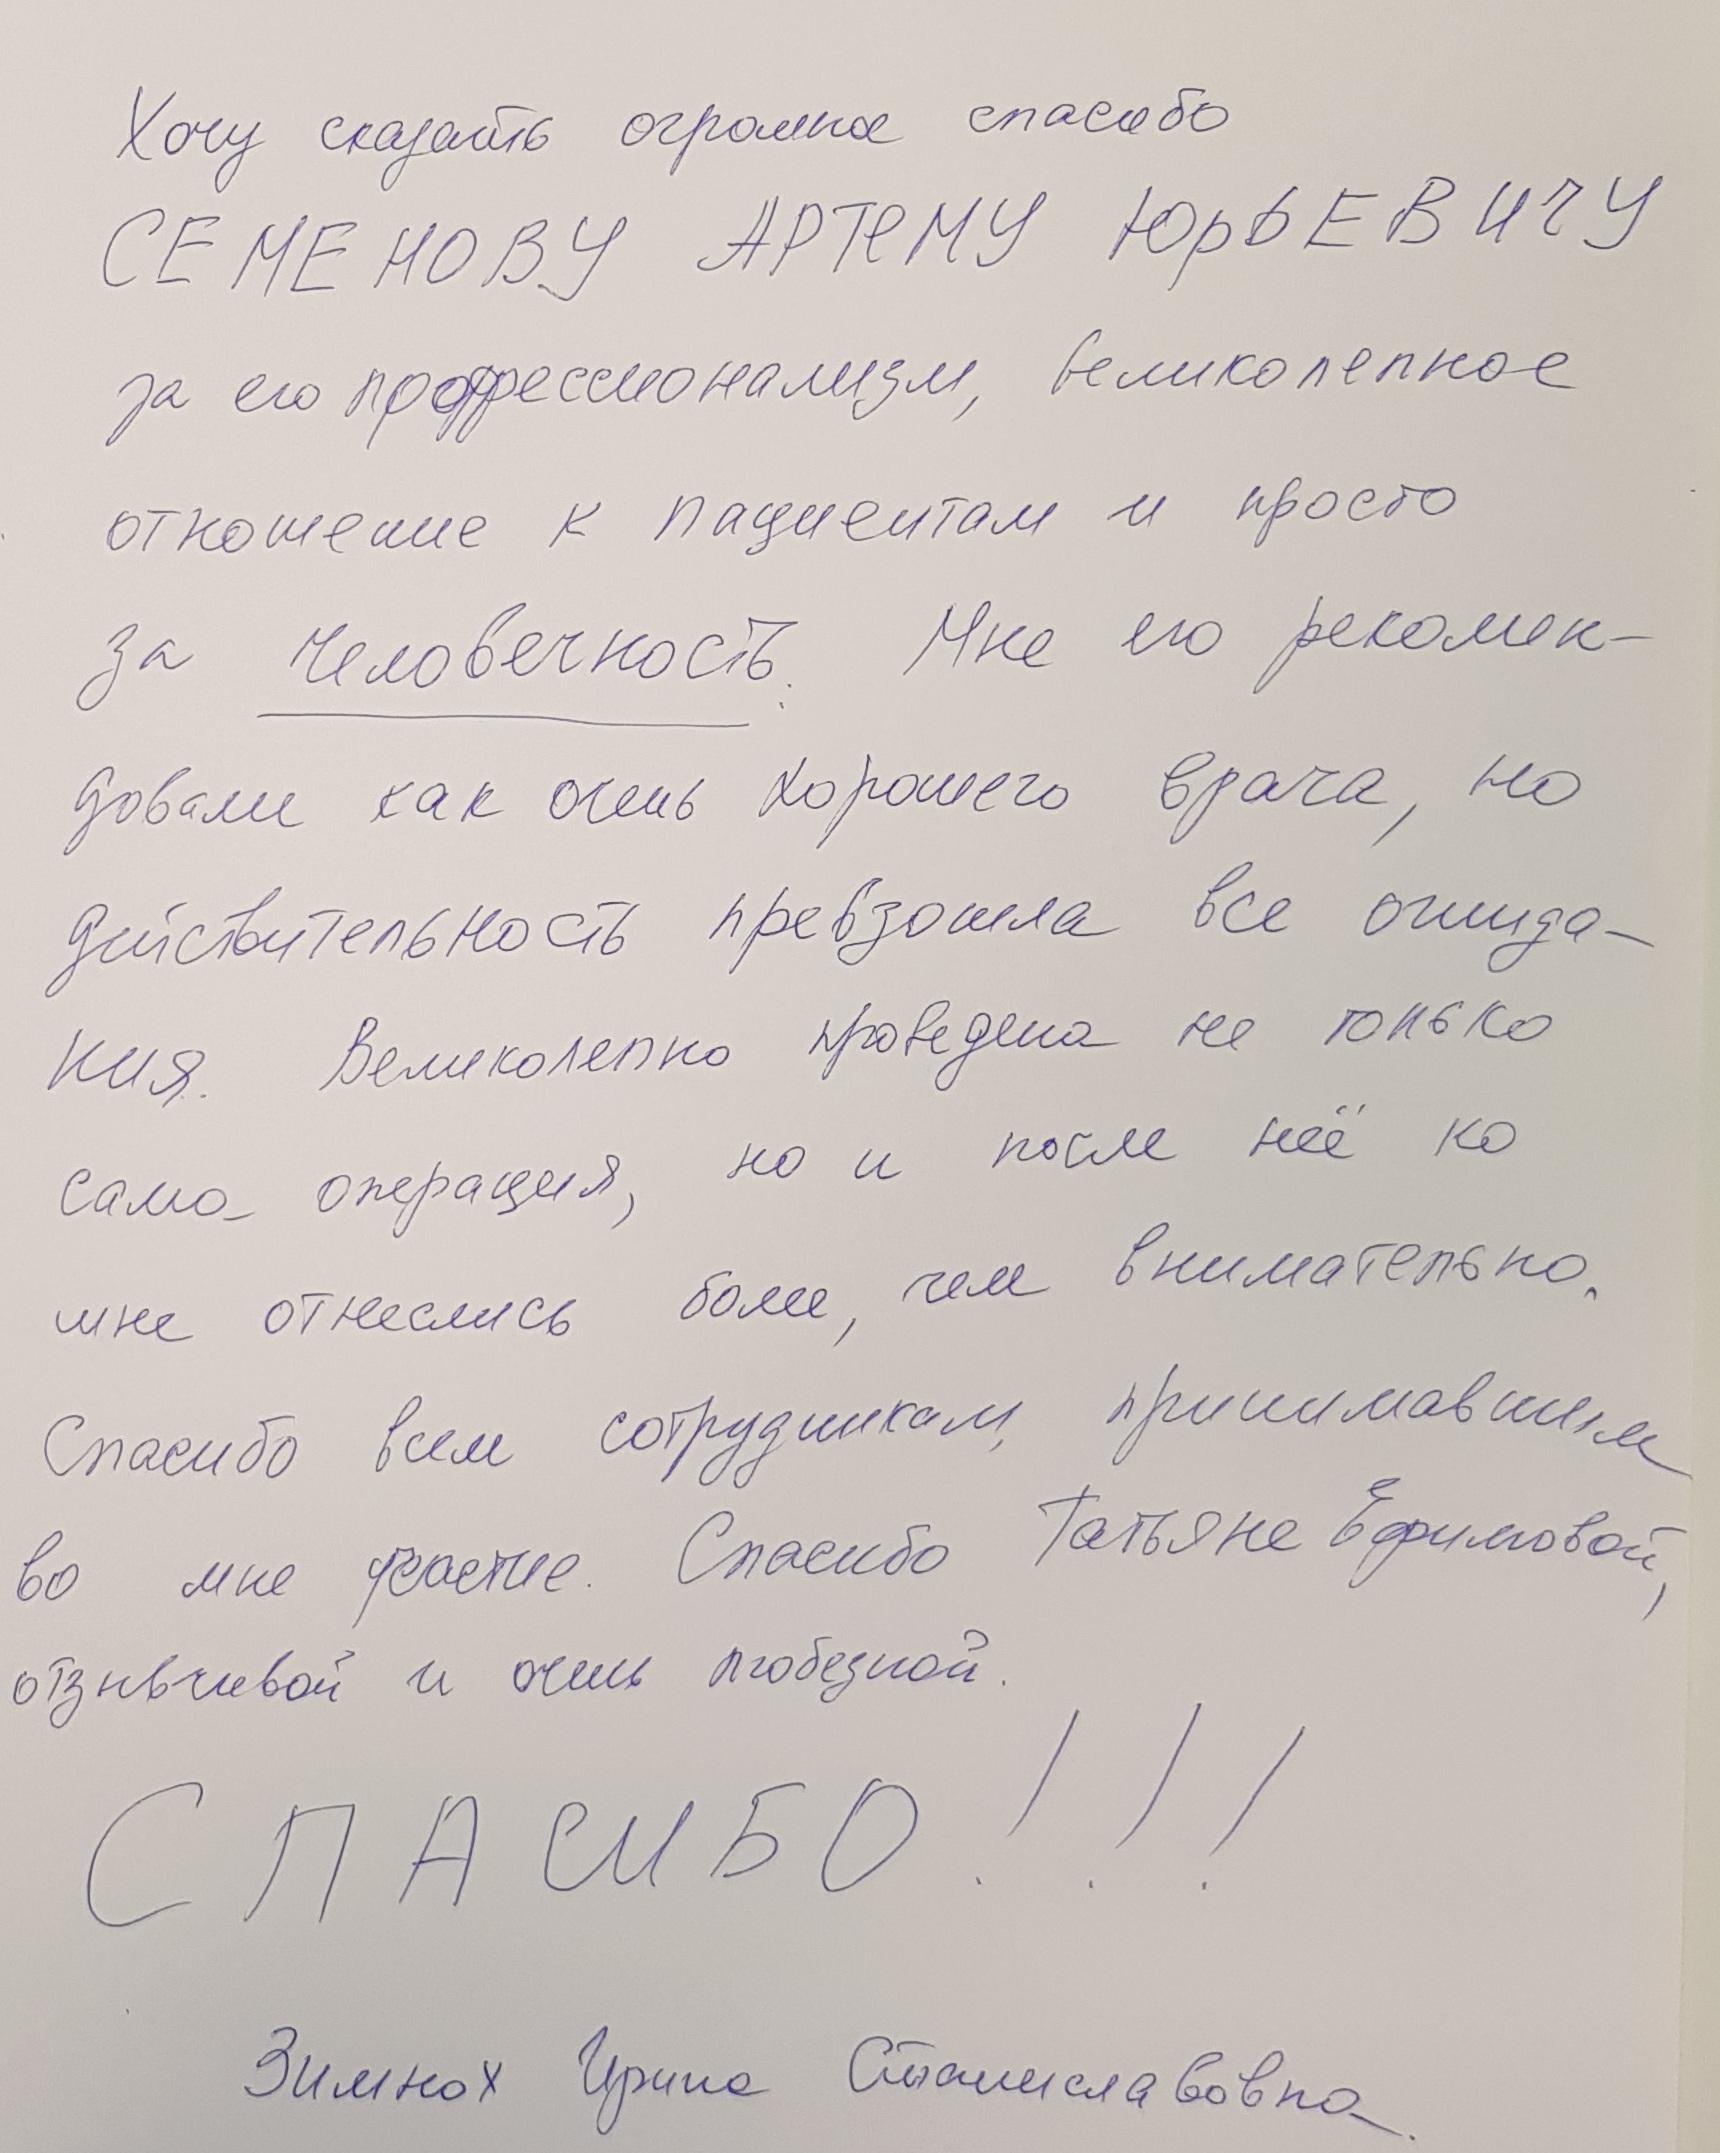 Хочу сказать огромное спасибо
СЕМЕНОВУ АРТЕМУ ЮРЬЕВИЧУ
за его профессионализм, великолепное
отношение к пациентам и просто
за человечность. Мне его рекомен-
довали как очень хорошего врача, но
действительность превзошла все ожида-
ния. Великолепно проведена не только
сама операция, но и после неё ко
мне отнеслись более, чем внимательно.
Спасибо всем сотрудникам, принимавшим
во мне участие. Спасибо Татьяне Ефимовой,
отзывчивой и очень любезной.
СПАСИБО!!!
Зимнох Ирина Станиславовна.